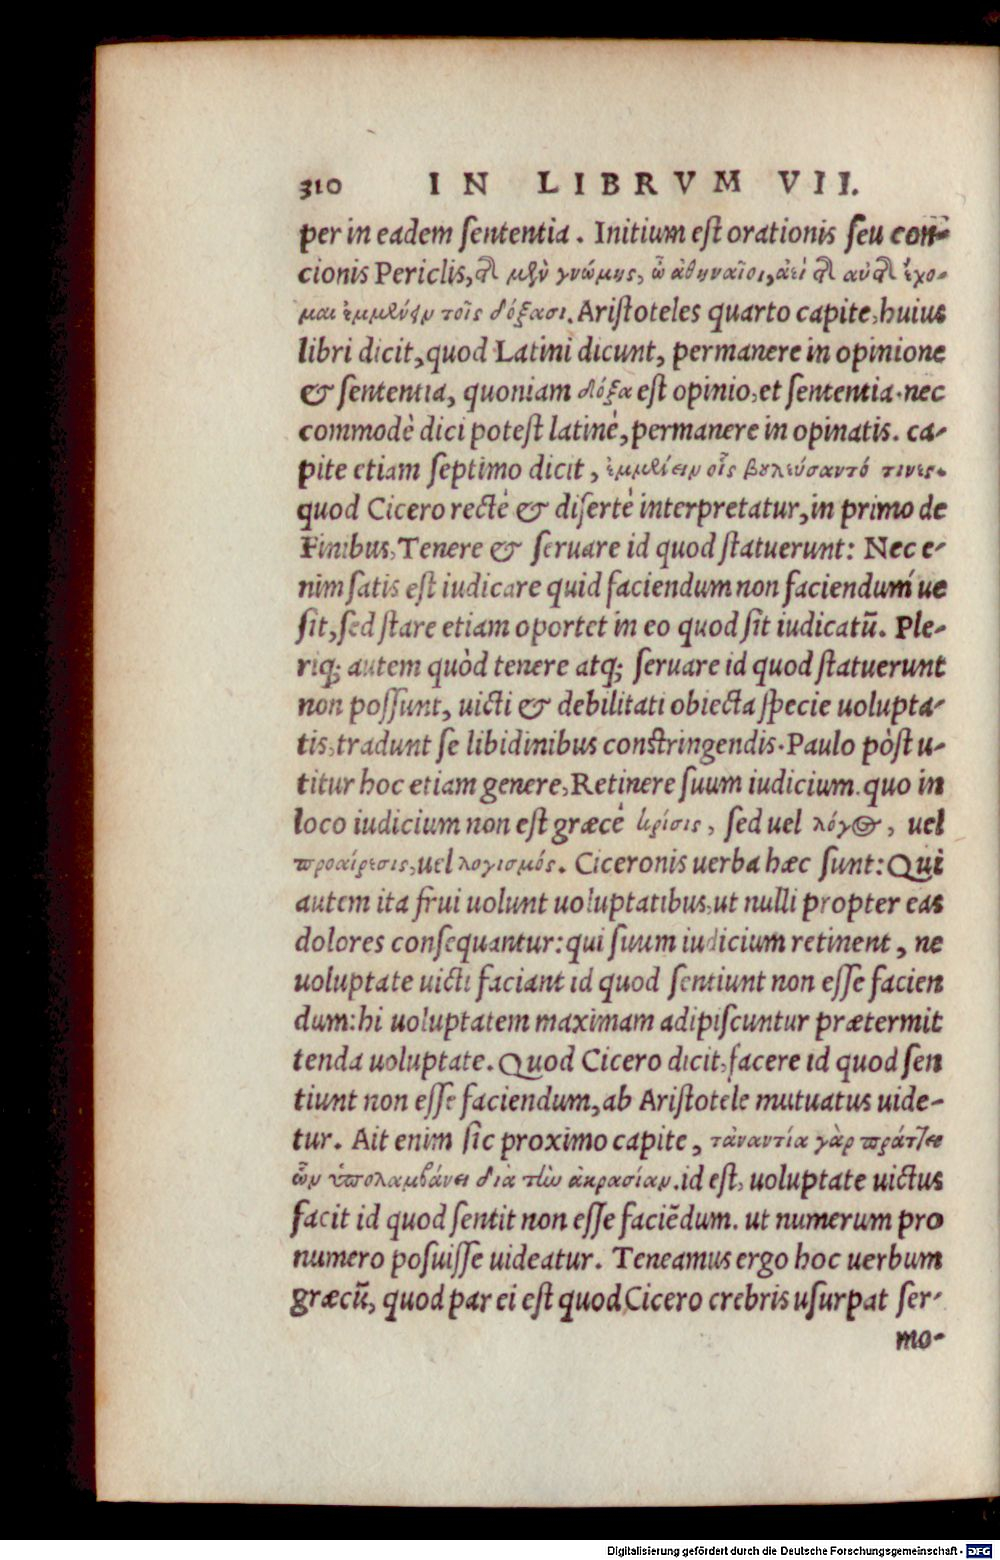 310 IN LIBRVM VII.
per in eadem ſententia. Initium eſt orationis ſeu con-
cionis Periclis, τῆς μὲν γνώμης, ὦ ἀθηναῖοι, ἀεὶ τῆς αὐτῆς ἔχο-
μαι ἐμμένειν τοῖς δόξασι. Ariſtoteles quarto capite, huius
libri dicit, quod Latini dicunt, permanere in opinione
& ſententia, quoniam δόξα est opinio, et ſententia. nec
commodè dici poteſt latinè, permanere in opinatis. ca-
pite etiam ſeptimo dicit, ἐμμένειν οἷς βουλεύσαντό τινες.
quod Cicero rectè & diſertè interpretatur, in primo de
Finibus, Tenere & ſeruare id quod ſtatuerunt: Nec e-
nim ſatis eſt iudicare quid faciendum non faciendum´ue
ſit, ſed ſtare etiam oportet in eo quod ſit iudicatū. Ple-
riq; autem quòd tenere atq; ſeruare id quod ſtatuerunt
non poſſunt, uicti & debilitati obiecta ſpecie uolupta-
tis, tradunt ſe libidinibus conſtringendis. Paulo pòſt u-
titur hoc etiam genere, Retinere ſuum iudicium. quo in
loco iudicium non eſt græcè κρίσις, ſed uel λόγος, uel
προαίρεσις, uel λογισμός. Ciceronis uerba hæc ſunt: Qui
autem ita frui uolunt uoluptatibus, ut nulli propter eas
dolores conſequantur: qui ſuum iudicium retinent, ne
uoluptate uicti faciant id quod ſentiunt non eſſe facien
dum: hi uoluptatem maximam adipiſcuntur prætermit
tenda uoluptate. Quod Cicero dicit, facere id quod ſen
tiunt non eſſe faciendum, ab Ariſtotele mutuatus uide-
tur. Ait enim ſic proximo capite, τἀναντία γὰρ πράττει
ὧν ὑπολαμβάνει διὰ τὴν ἀκρασίαν. id eſt, uoluptate uictus
facit id quod ſentit non eſſe faciēdum. ut numerum pro
numero poſuiſſe uideatur. Teneamus ergo hoc uerbum
græcū, quod par ei eſt quod Cicero crebris uſurpat ſer-
mo-
Digitalisierung gefördert durch die Deutsche Forschungsgemeinschaft - DFG